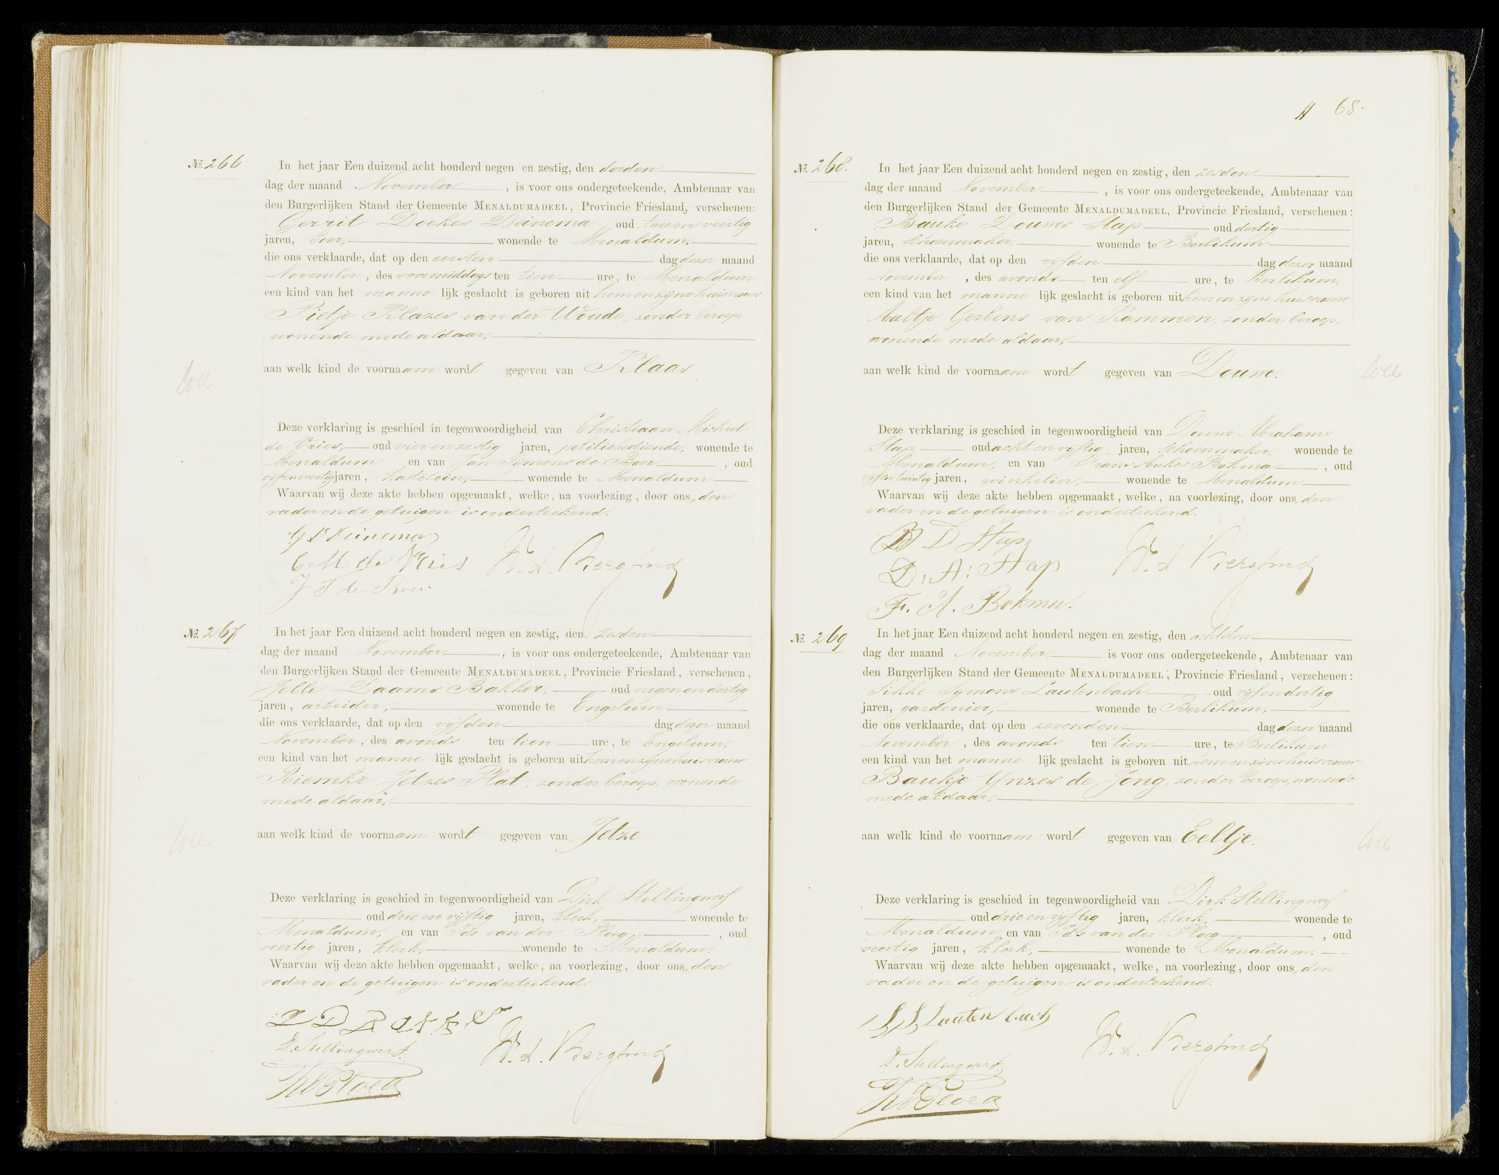 № 266
In het jaar Een duizend acht honderd negen en zestig, den derden
dag der maand November, is voor ons ondergeteekende, Ambtenaar van
den Burgerlijken Stand der Gemeente MENALDUMADEEL, Provincie Friesland, verschenen:
Gerrit Doekes Deinema oud
jaren, wonende te Menaldum,
die ons verklaarde, dat op den eersten dag dezer maand
November, des voormiddags ten ure, te Menaldum
een kind van het mannelijk geslacht is geboren uit hem en zijne huisvrouw
Sietje Klazes van der Woude, zonder beroep
wonende mede aldaar,
aan welk kind de voornaam wordt gegeven van Klaas
Deze verklaring is geschied in tegenwoordigheid van Christiaan Michiel
de Vries, oud vier en zestig jaren, wonende te
Menaldum en van Jan Symens de Boer, oud
jaren, kastelein, wonende te Menaldum
Waarvan wij deze akte hebben opgemaakt, welke, na voorlezing, door ons, den
vader en de getuigen is onderteekend.
G D Deinema
C M de Vries
№ 267
In het jaar Een duizend acht honderd negen en zestig, den zesden
dag der maand November, is voor ons ondergeteekende, Ambtenaar van
den Burgerlijken Stand der Gemeente MENALDUMADEEL, Provincie Friesland, verschenen,
Jelle Daams Bakker, oud een en dertig
jaren, arbeider, wonende te Engelum
die ons verklaarde, dat op den vijfden dag dezer maand
November, des avonds ten tien ure, te Engelum,
een kind van het mannelijk geslacht is geboren uit hem en zijne huisvrouw
Riemke Jetzes Plat, zonder beroep, wonende
mede aldaar,
aan welk kind de voornaam wordt gegeven van Jetze
Deze verklaring is geschied in tegenwoordigheid van Dirk Stellingwerf
oud drie en vijftig jaren, klerk, wonende te
Menaldum, en van Ids van der Ploeg, oud
veertig jaren, klerk, wonende te Menaldum
Waarvan wij deze akte hebben opgemaakt, welke, na voorlezing, door ons, den
vader en de getuigen is onderteekend.
J D Bakker
D. Stellingwerf
68.
№ 268.
In het jaar Een duizend acht honderd negen en zestig, den zesden
dag der maand November, is voor ons ondergeteekende, Ambtenaar van
den Burgerlijken Stand der Gemeente MENALDUMADEEL, Provincie Friesland, verschenen:
Bauke Douwes Hap oud dertig
jaren, schoenmaker wonende te Berlikum
die ons verklaarde, dat op den vijfden dag dezer maand
November, des avonds ten elf ure, te Berlikum,
een kind van het mannelijk geslacht is geboren uit hem en zijne huisvrouw
Aaltje Gerbens van Kammen, zonder beroep,
wonende mede aldaar,
aan welk kind de voornaam wordt gegeven van Douwe.
Deze verklaring is geschied in tegenwoordigheid van Douwe Abrahams
Hap oud acht en vijftig jaren, schoenmaker wonende te
Menaldum, en van Bokma, oud
jaren, winkelier, wonende te Menaldum
Waarvan wij deze akte hebben opgemaakt, welke, na voorlezing, door ons, den
vader en de getuigen is onderteekend.
B D Hap
D: A: Hap
F. A. Bokma.
№ 269
In het jaar Een duizend acht honderd negen en zestig, den achtsten
dag der maand November is voor ons ondergeteekende, Ambtenaar van
den Burgerlijken Stand der Gemeente MENALDUMADEEL, Provincie Friesland, verschenen:
Symens Lautenbach oud vijf en dertig
jaren, gardenier, wonende te Berlikum,
die ons verklaarde, dat op den zevenden dag dezer maand
November, des avonds ten tien ure, te Berlikum
een kind van het mannelijk geslacht is geboren uit hem en zijne huisvrouw
Baukje Ynzes de Jong, zonder beroep, wonende
mede aldaar,
aan welk kind de voornaam wordt gegeven van Eeltje.
Deze verklaring is geschied in tegenwoordigheid van Dirk Stellingwerf
oud drie en vijftig jaren, klerk, wonende te
Menaldum en van Ids van der Ploeg, oud
veertig jaren, klerk, wonende te Menaldum,
Waarvan wij deze akte hebben opgemaakt, welke, na voorlezing, door ons, den
vader en de getuigen is onderteekend.
S S Lautenbach
D. Stellingwerf